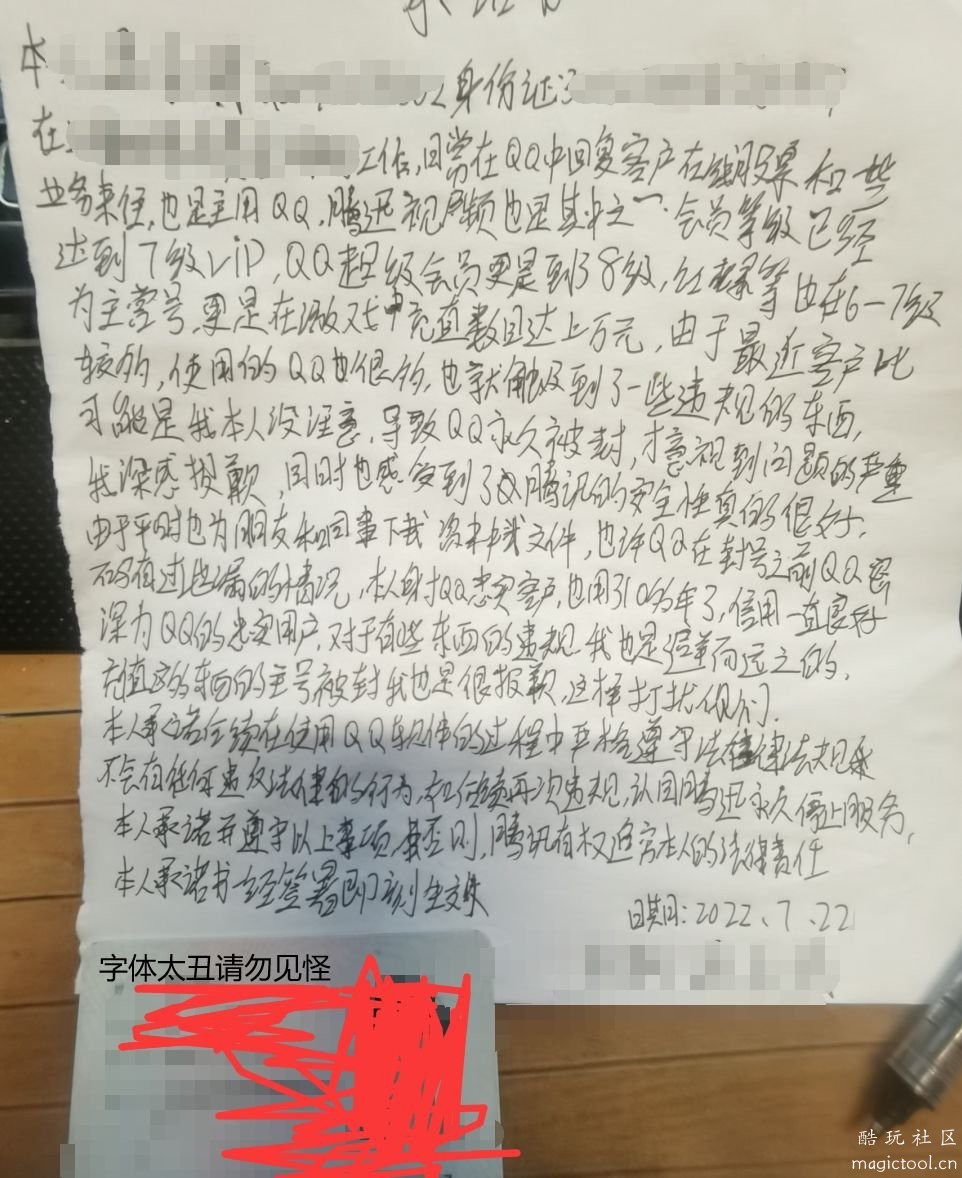 承诺书
本
身份证
在 工作,日常在QQ中回复客户在线股票和一些
业务来往,也是主用QQ,腾讯视频也是其中之一.会员等级已经
达到7级VIP,QQ超级会员更是到了8级,红 等也在6一7级
为主营号,更是在游戏中充值数目达上万元,由于最近客户比
较多,使用的QQ也很多,也就触及到了一些违规的东西,
可能是我本人没注意,导致QQ永久被封,才意视到问题的严重
我深感报歉,同时也感受到了 腾讯的安全性真的很好.
由于平时也为朋友和同事下载 文件,也许QQ在封号之前QQ密
有过 漏的情况,本人身为QQ忠实客户,也用了10多年了,信用一直良好
深为QQ的忠实用户,对于有些东西的违规我也是 而远之的,
充值这多东西的主号被封我也是很报歉,这样打扰你们.
本人承诺 续在使用QQ软件的过程中严格遵守法律法规
不会有任何违反法律的行为,如 续再次违规,认同腾迅永久停止服务,
本人承诺并遵守以上事项, 否则,腾讯有权追究本人的法律责任
本人承诺书一经签署即刻生效
日期:2022、7、22
字体太丑请勿见怪
酷玩社区
magictool.cn